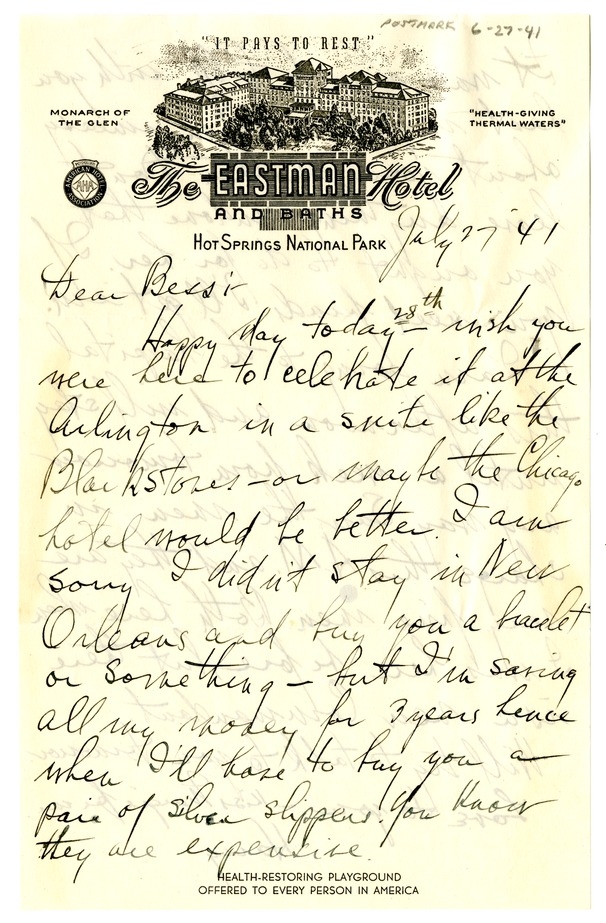 POSTMARK 6-27-41
"IT PAYS TO REST"
MONARCH OF
THE GLEN
"HEALTH-GIVING
THERMAL WATERS"
AMERICAN HOTEL
AHA
ASSOCIATION
The EASTMAN Hotel
AND BATHS
HOT SPRINGS NATIONAL PARK
July 27 '41
Dear Bess:-
Happy day today 28th - wish you
were here to celebrate it at the
Arlington in a suite like the
Blackstones - or maybe the Chicago
hotel would be better. I am
sorry I didn't stay in New
Orleans and buy you a bracelet
or something - but I'm saving
all my money for 3 years hence
when I'll have to buy you a
pair of silver slippers. You know
they are expensive.
HEALTH-RESTORING PLAYGROUND
OFFERED TO EVERY PERSON IN AMERICA